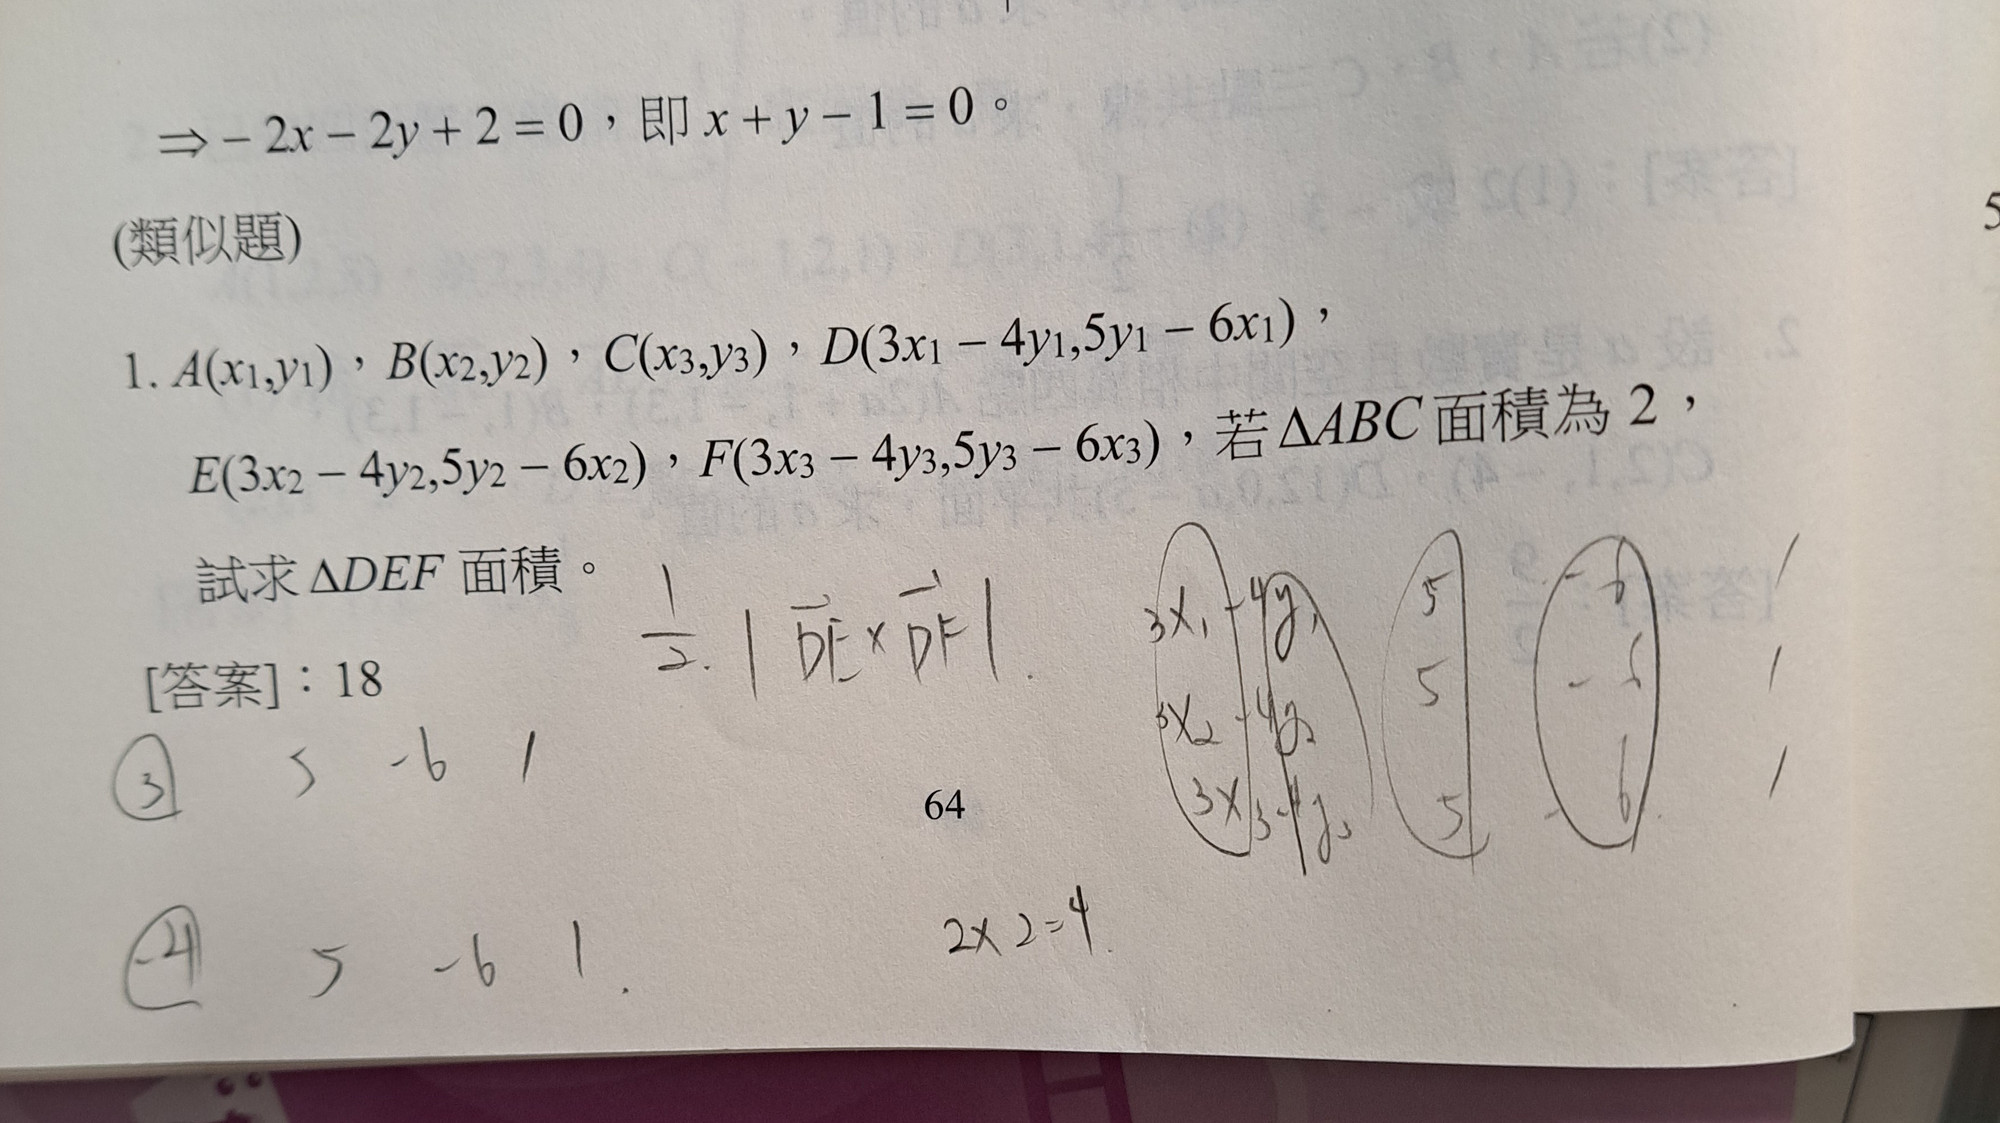 ⇒ − 2x − 2y + 2 = 0，即 x + y − 1 = 0。
(類似題)
1. A(x₁,y₁)，B(x₂,y₂)，C(x₃,y₃)，D(3x₁ − 4y₁,5y₁ − 6x₁)，
E(3x₂ − 4y₂,5y₂ − 6x₂)，F(3x₃ − 4y₃,5y₃ − 6x₃)，若 ΔABC 面積為 2，
試求 ΔDEF 面積。
1/2 | DE × DF |
[答案]：18
3x₁ −4y₁ 5 −6 1
3x₂ −4y₂ 5 1
3x₃ −4y₃ 5 −6 1
3 5 −6 1
64
−4 5 −6 1
2×2=4
5